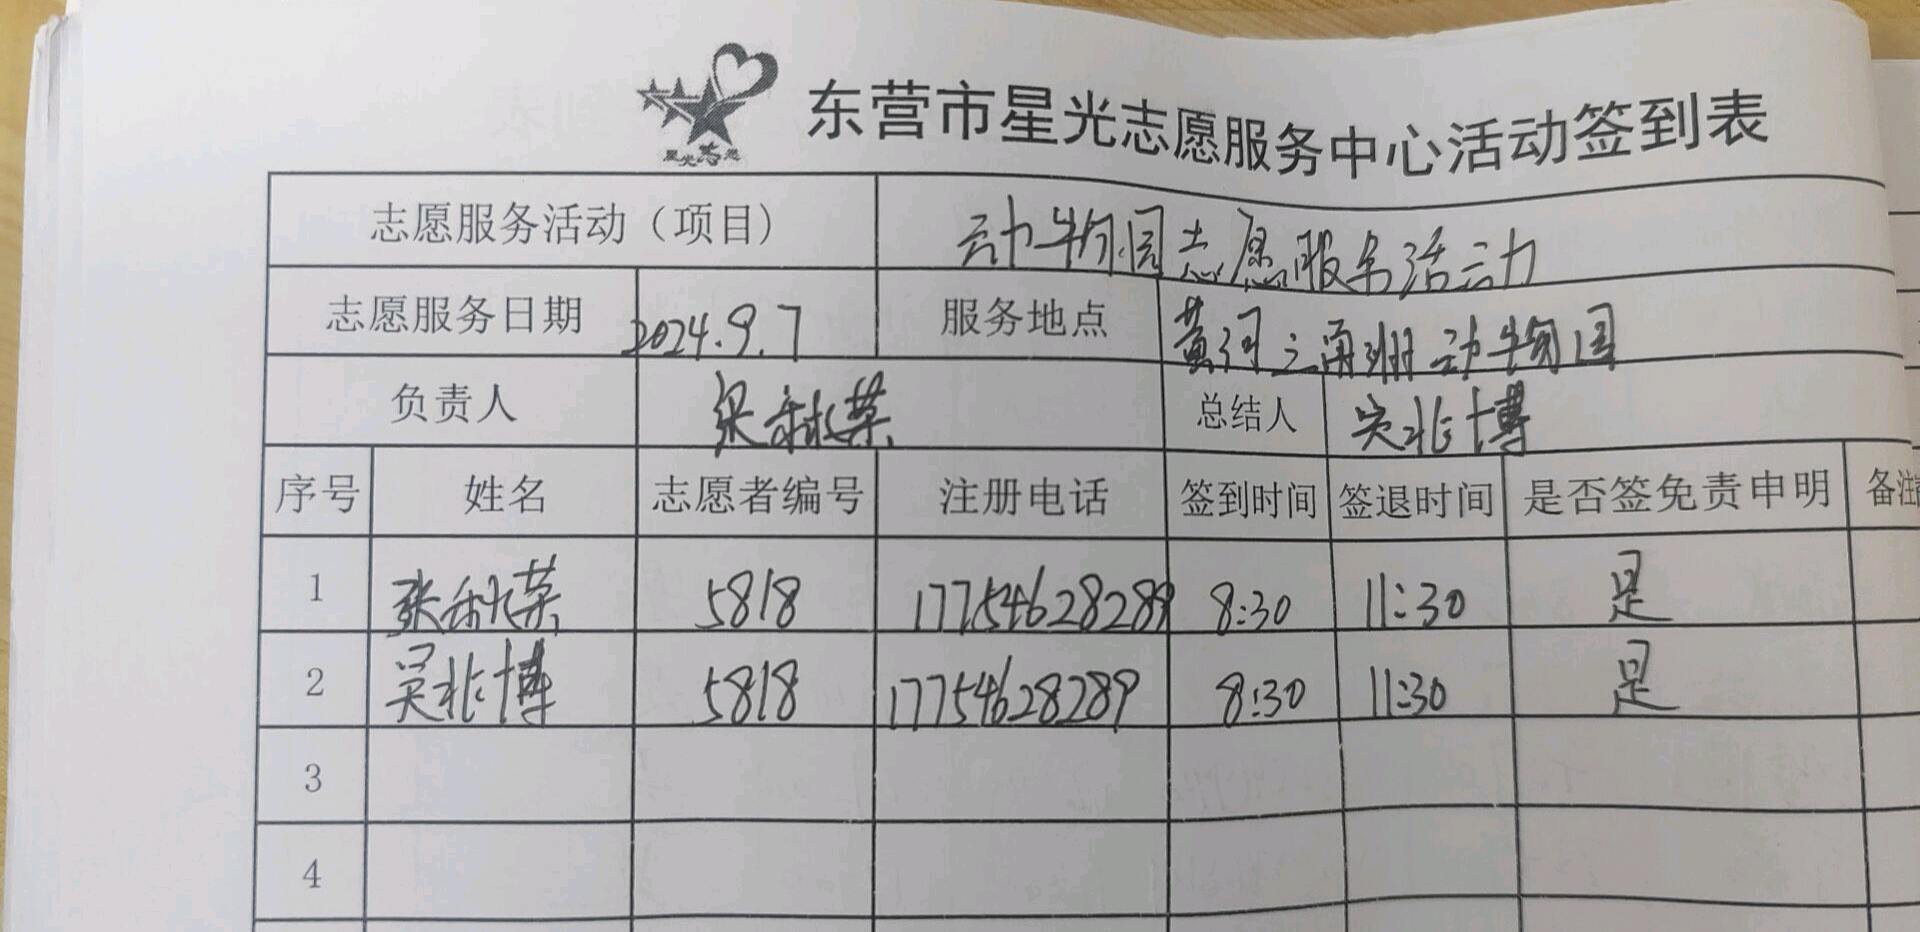 星光志愿
东营市星光志愿服务中心活动签到表
志愿服务活动（项目） 动物园志愿服务活动
志愿服务日期 2024.9.7 服务地点 黄河三角洲动物园
负责人 张秋荣 总结人 吴兆博
序号 姓名 志愿者编号 注册电话 签到时间 签退时间 是否签免责申明 备注
1 张秋荣 5818 17754628289 8:30 11:30 是
2 吴兆博 5818 17754628289 8:30 11:30 是
3
4